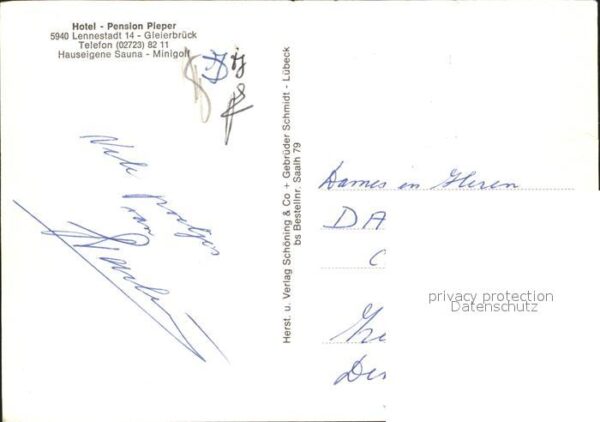 Hotel - Pension Pieper
5940 Lennestadt 14 - Gleierbrück
Telefon (02723) 82 11
Hauseigene Sauna - Minigolf
Vele groetjes
van
Herst. u. Verlag Schöning & Co + Gebrüder Schmidt - Lübeck
bs Bestellnr. Saalh 79
Dames en Heren
DA
privacy protection
Datenschutz